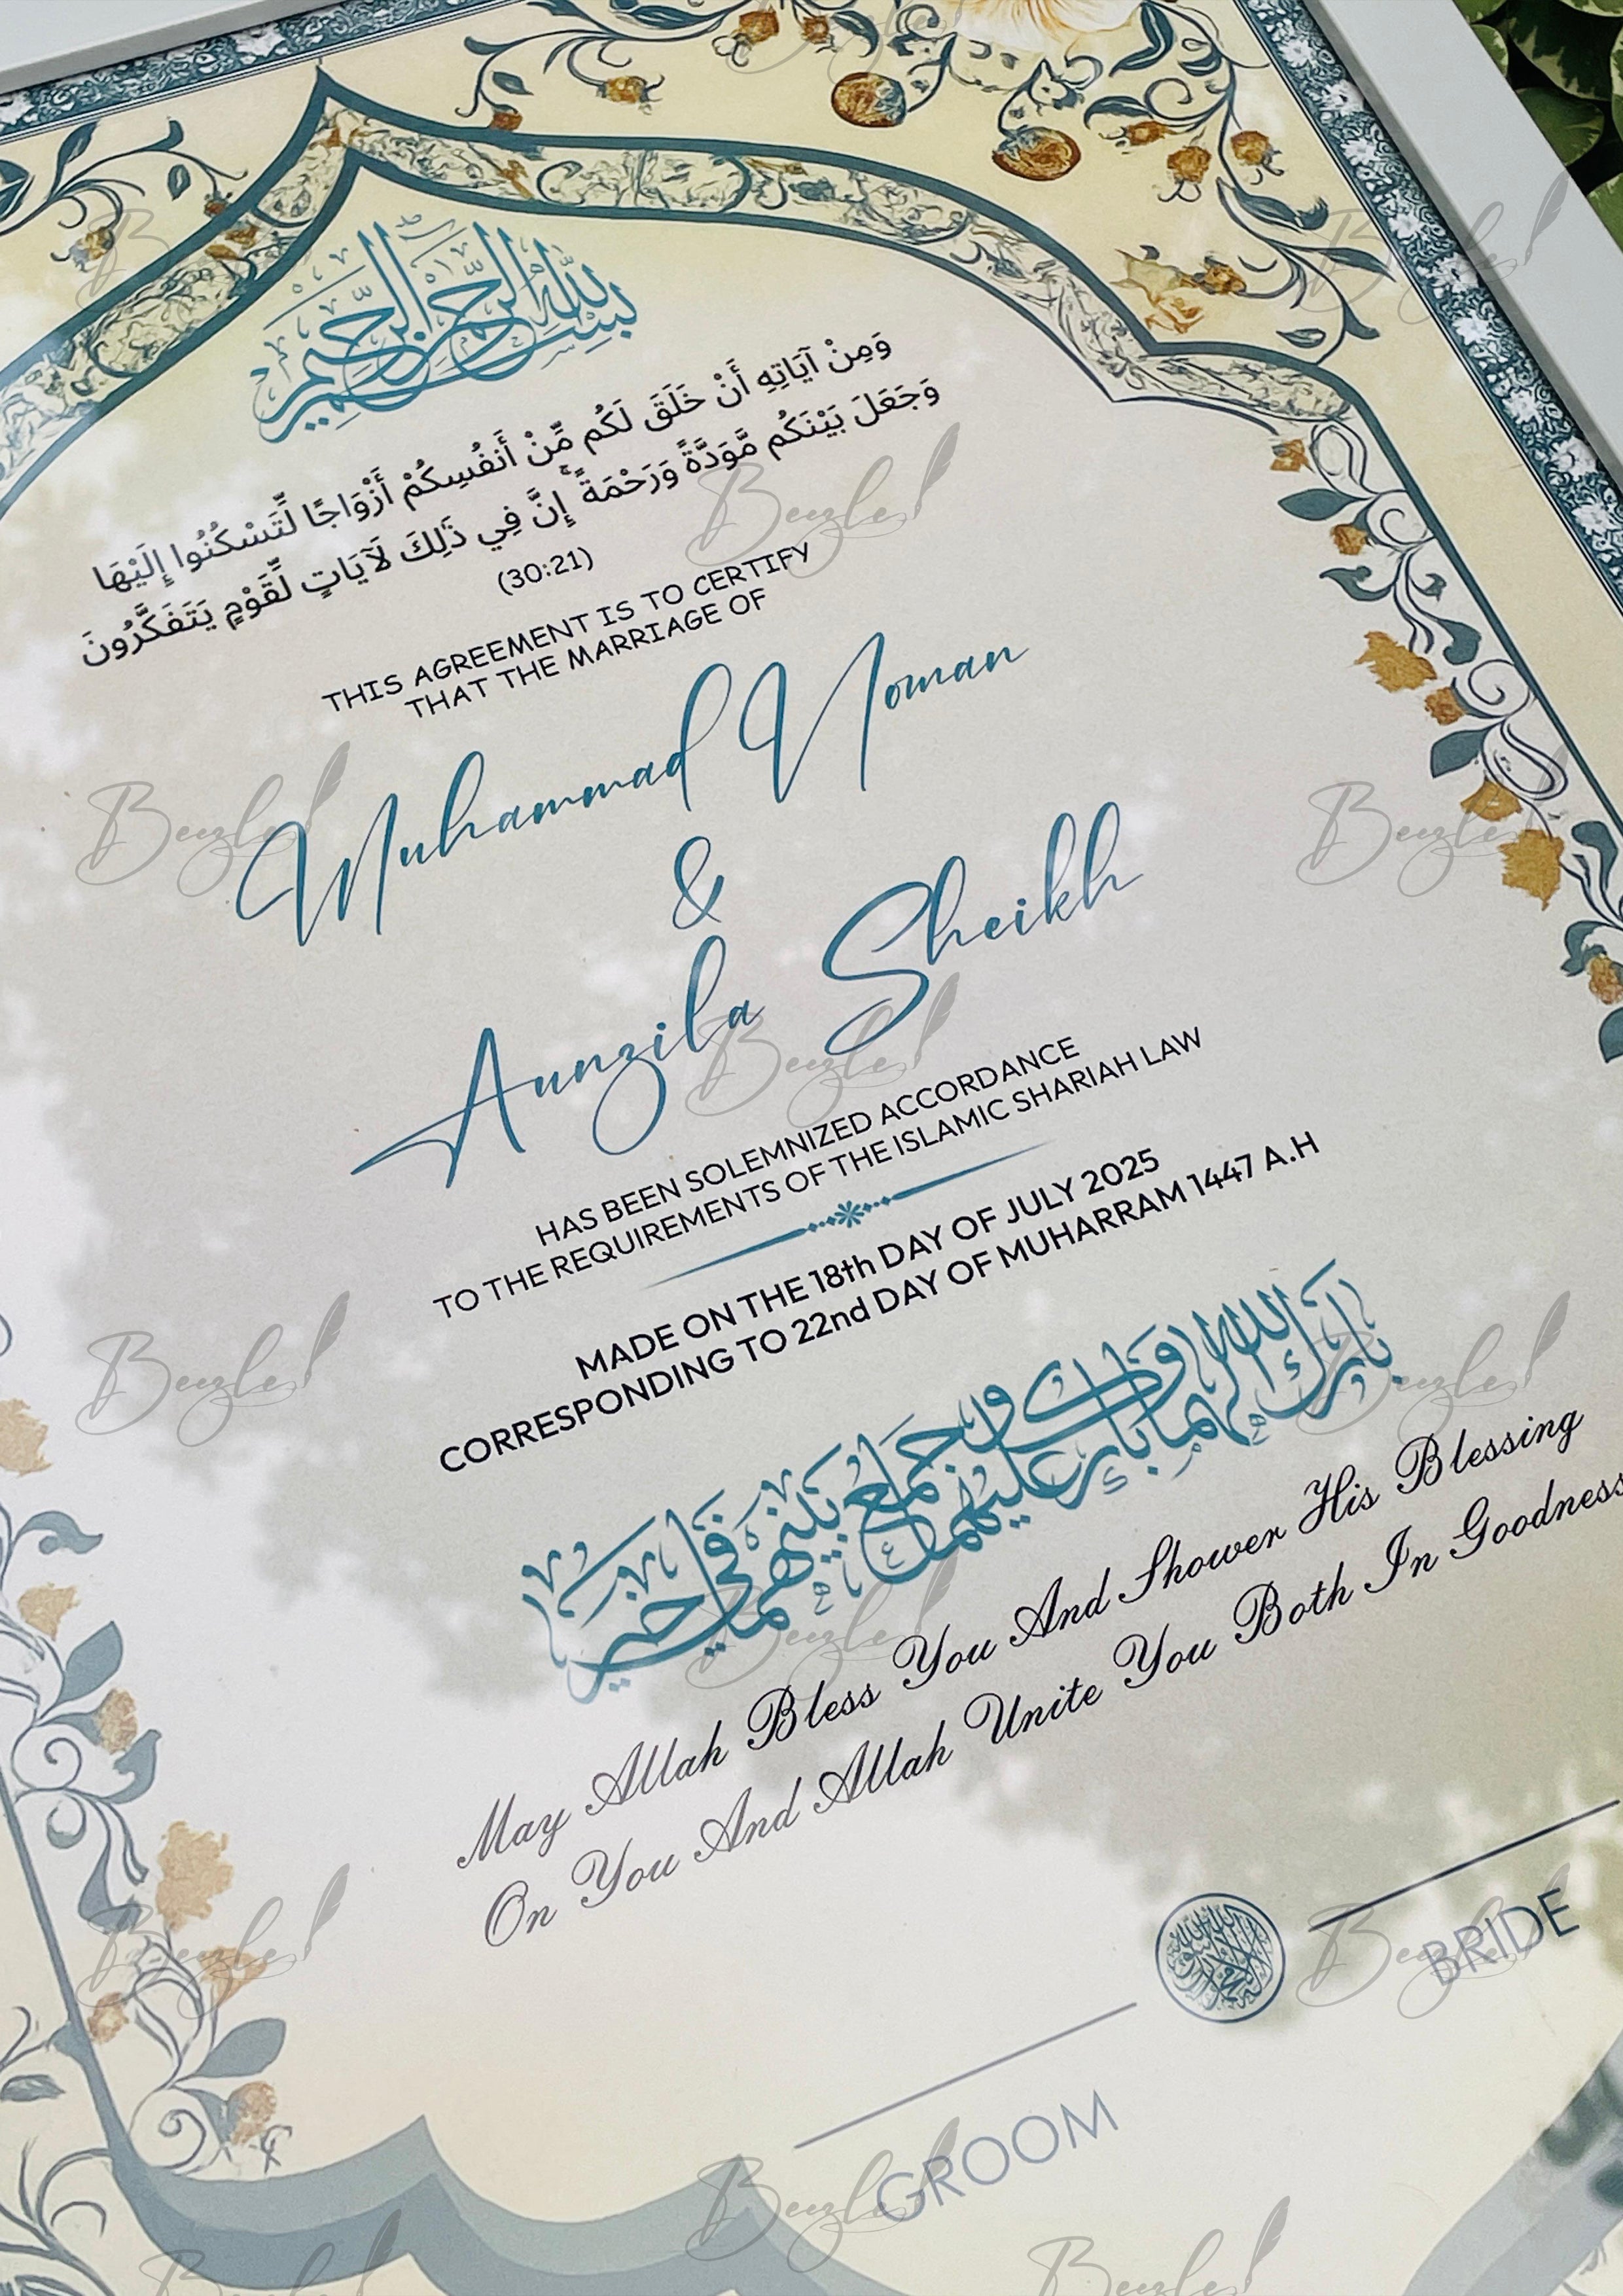 بسم الله الرحمن الرحيم
وَمِنْ آيَاتِهِ أَنْ خَلَقَ لَكُم مِّنْ أَنفُسِكُمْ أَزْوَاجًا لِّتَسْكُنُوا إِلَيْهَا
وَجَعَلَ بَيْنَكُم مَّوَدَّةً وَرَحْمَةً ۚ إِنَّ فِي ذَٰلِكَ لَآيَاتٍ لِّقَوْمٍ يَتَفَكَّرُونَ
(30:21)
THIS AGREEMENT IS TO CERTIFY
THAT THE MARRIAGE OF
Muhammad Noman
&
Aunzila Sheikh
HAS BEEN SOLEMNIZED ACCORDANCE
TO THE REQUIREMENTS OF THE ISLAMIC SHARIAH LAW
MADE ON THE 18th DAY OF JULY 2025
CORRESPONDING TO 22nd DAY OF MUHARRAM 1447 A.H
بارك الله لكما وبارك عليكما وجمع بينهما في خير
May Allah Bless You And Shower His Blessing
On You And Allah Unite You Both In Goodness
BRIDE
GROOM